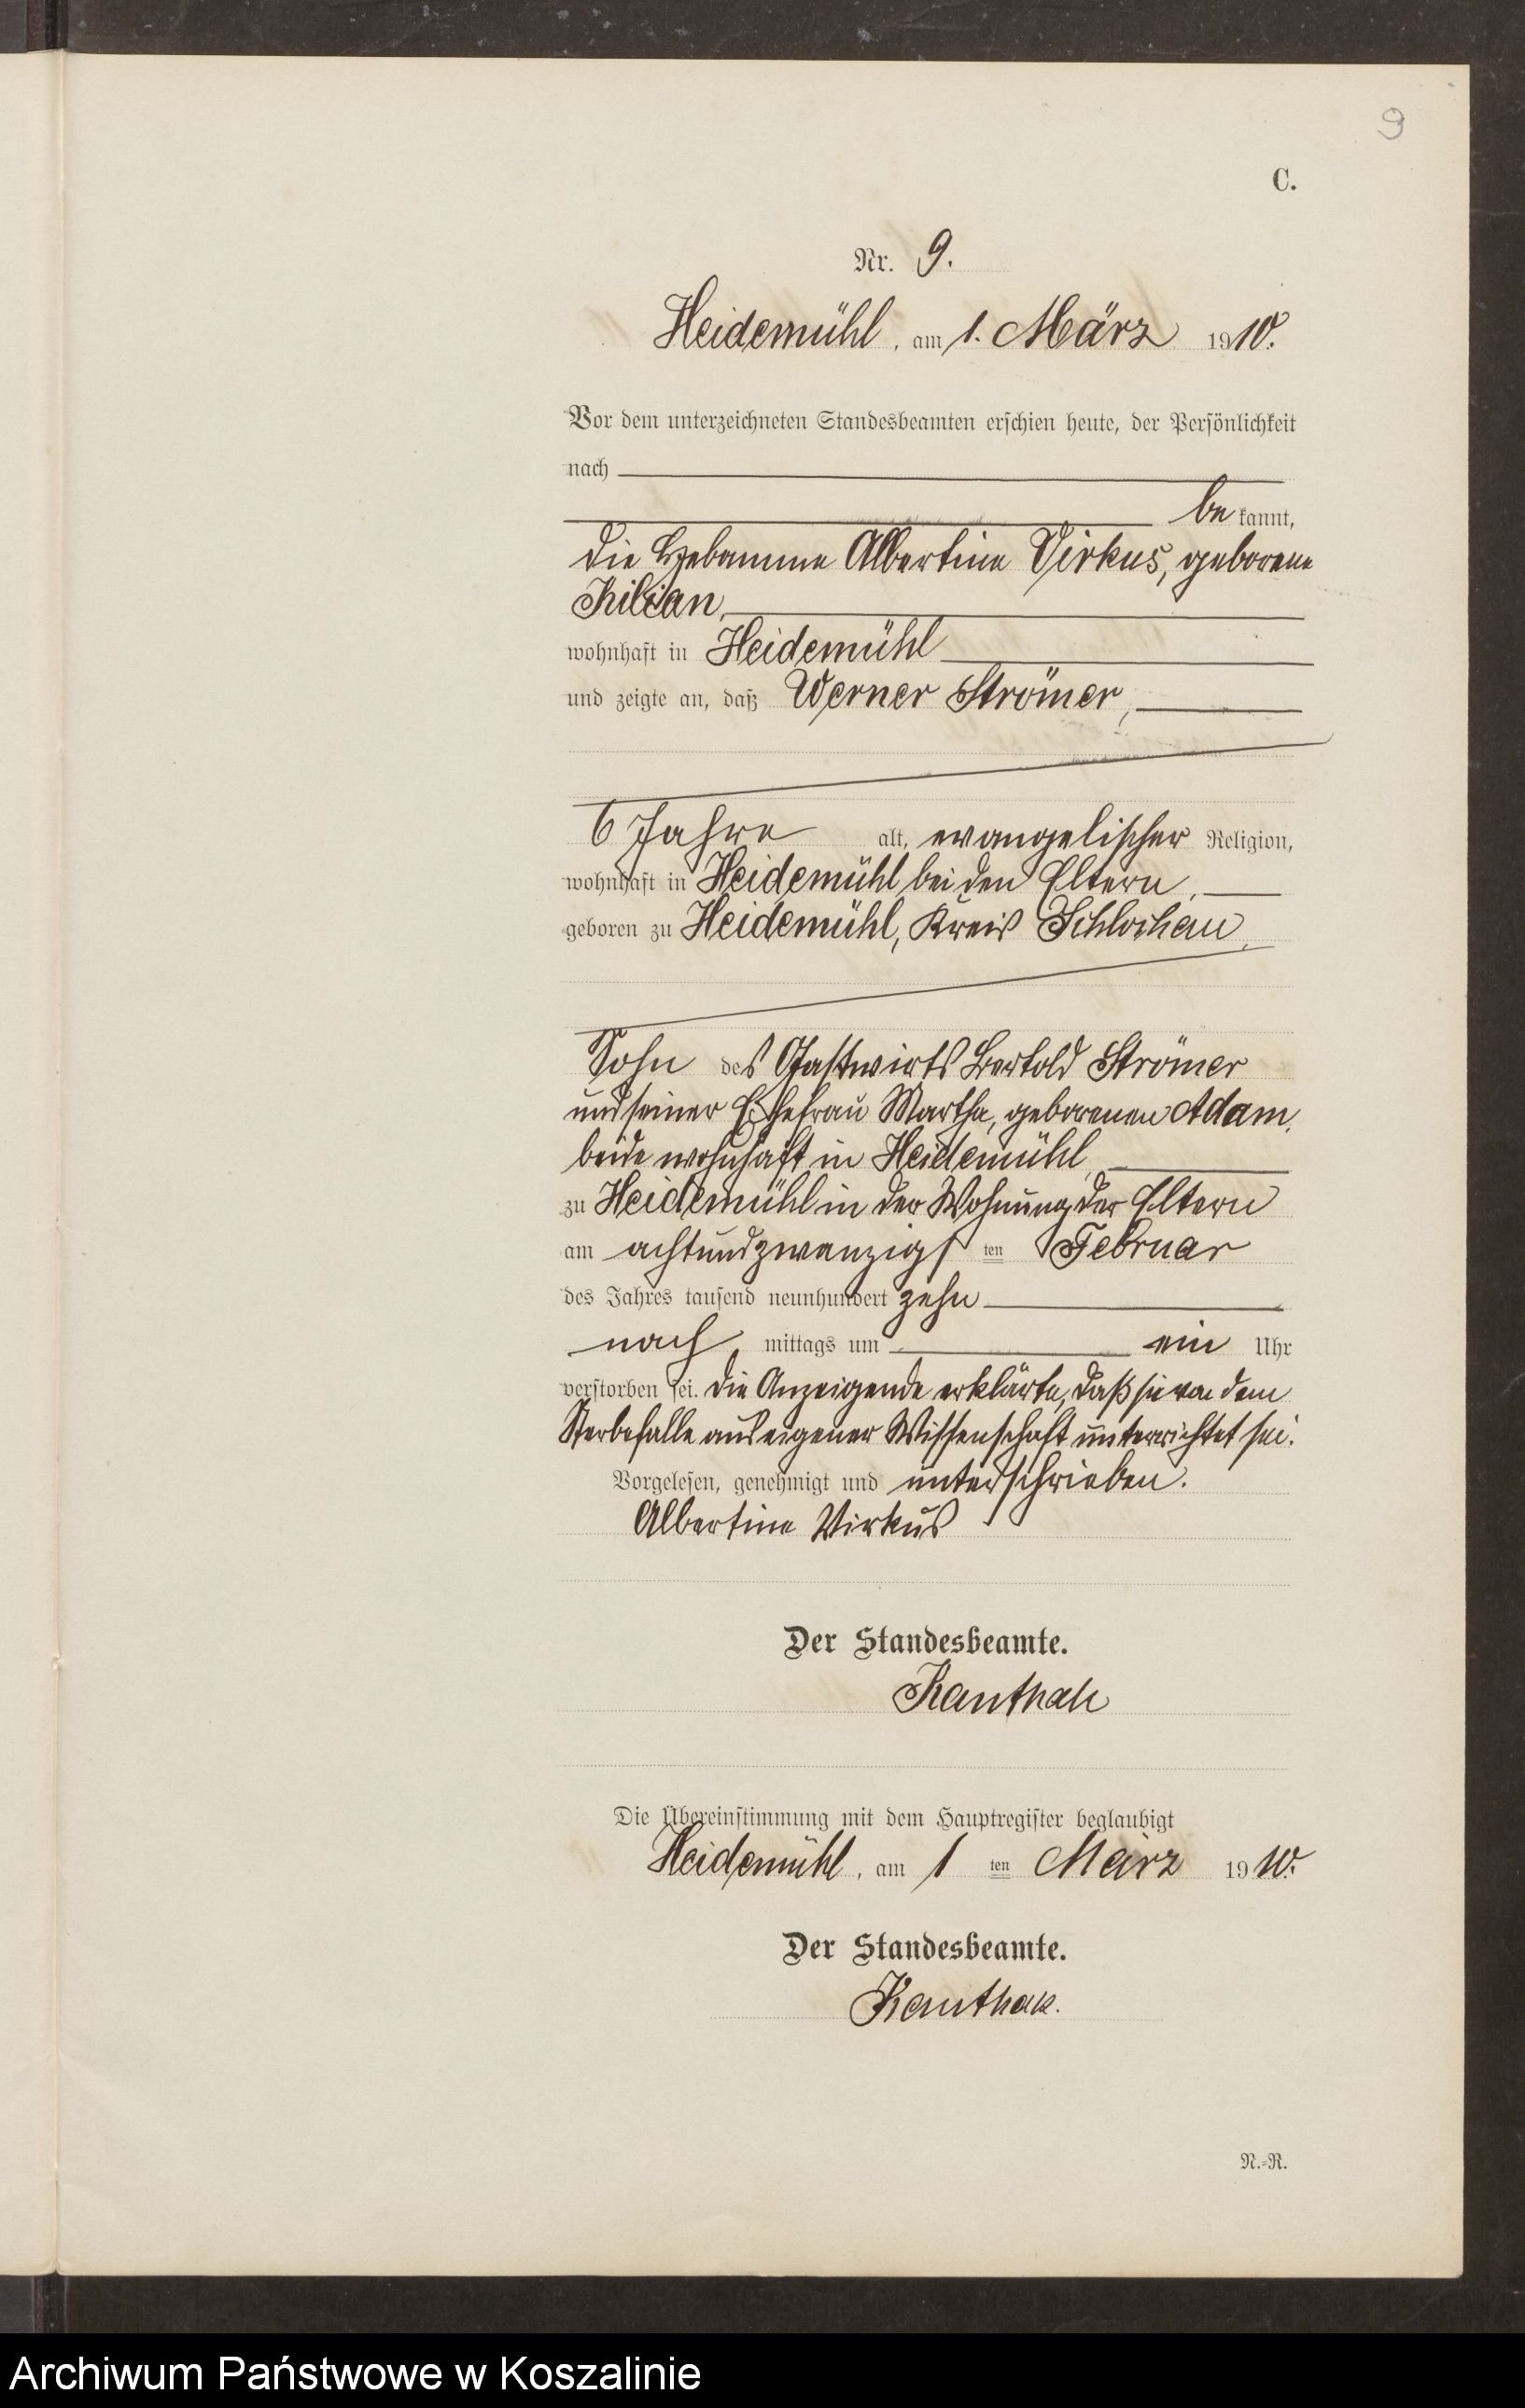 9
C.
Nr. 9.
Heidemühl, am 1. März 1910.
Vor dem unterzeichneten Standesbeamten erschien heute, der Persönlichkeit
nach
be kannt,
die Hebamme Albertine Virkus, geborene
Kilian,
wohnhaft in Heidemühl
und zeigte an, daß Werner Strömer,
6 Jahre alt, evangelischer Religion,
wohnhaft in Heidemühl bei den Eltern,
geboren zu Heidemühl, Kreis Schlochau,
Sohn des Gastwirts Bertold Strömer
und seiner Ehefrau Martha, geborenen Adam,
beide wohnhaft in Heidemühl,
zu Heidemühl in der Wohnung der Eltern
am achtundzwanzigs ten Februar
des Jahres tausend neunhundert zehn
nach mittags um ein Uhr
verstorben sei. Die Anzeigende erklärte, daß sie von dem
Sterbefalle aus eigener Wissenschaft unterrichtet sei.
Vorgelesen, genehmigt und unterschrieben.
Albertine Virkus
Der Standesbeamte.
Kanthak
Die Übereinstimmung mit dem Hauptregister beglaubigt
Heidemühl, am 1 ten März 1910.
Der Standesbeamte.
Kanthak.
N.-R.
Archiwum Państwowe w Koszalinie